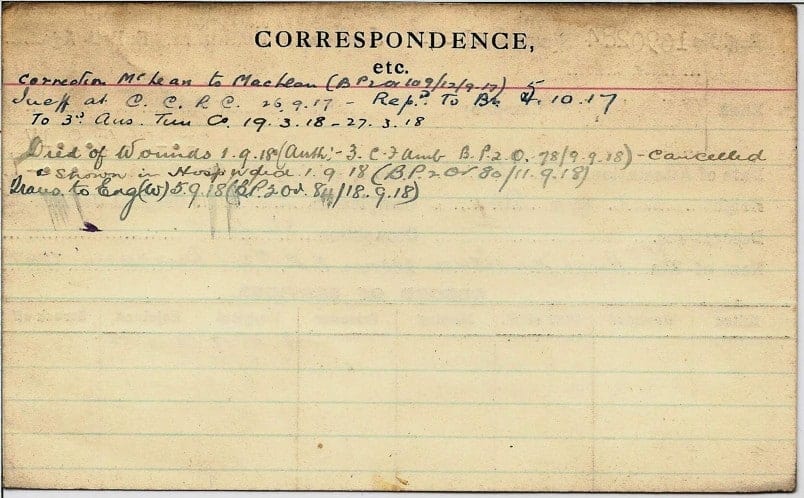 CORRESPONDENCE,
etc.
Correction McLean to Maclean (B P2 O 109/12/9-17)
Ineff at C. C. R. C. 26.9.17 - Rep.d To Bn 5.10.17
To 3d Aus. Tun Co. 19.3.18-27.3.18
Died of Wounds 1.9.18 (Auth:- 3. C. F Amb B.P.2.O. 78/9.9.18) - Cancelled
& Shown in Hosp 1.9.18 (B.P.2 Or 80/11.9.18)
Trans to Eng (W) 5.9.18 (B.P.2 Or 84/18.9.18)